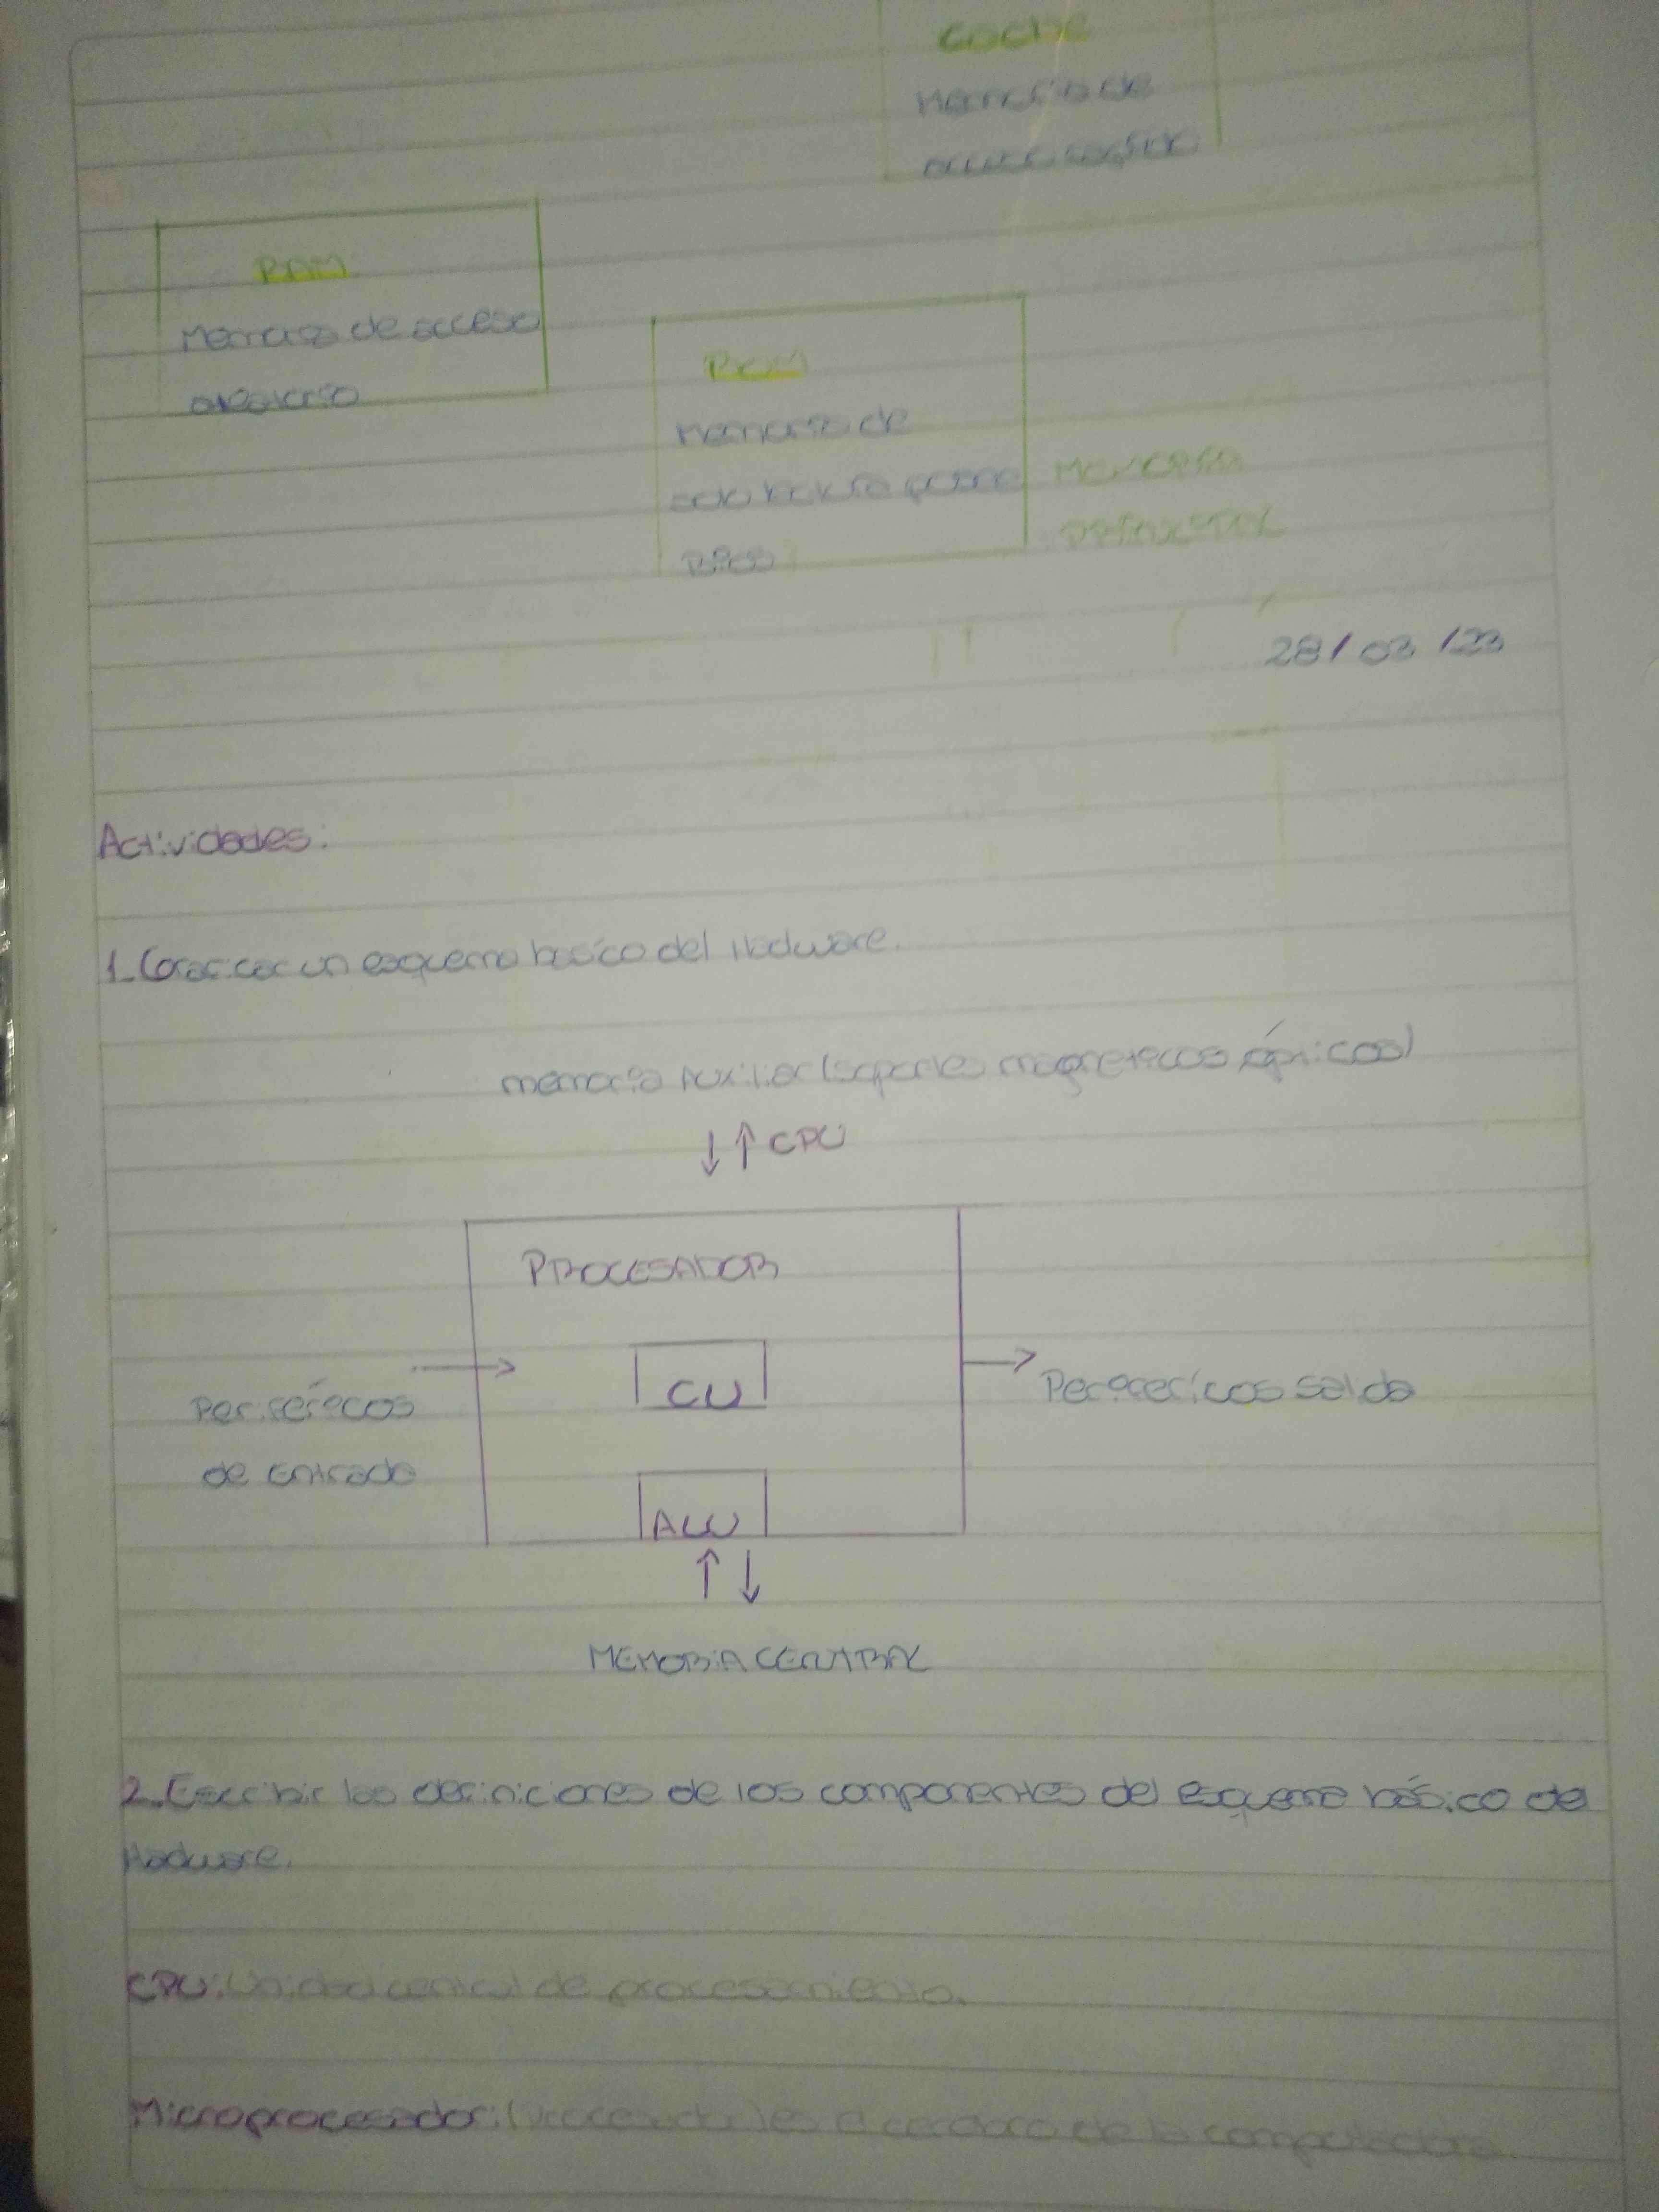 Caché
Memoria de
RAM
Memoria de acceso
aleatorio
ROM
Memoria de
solo lectura
BIOS
MEMORIA
PRINCIPAL
28/03/23
Actividades:
1_Graficar un esquema basico del Hadware.
memoria Auxiliar (soportes magneticos ópticos)
↓↑ CPU
PROCESADOR
CU
Periféricos
de entrada
→
→ Perifericos salida
ALU
↑↓
MEMORIA CENTRAL
2_Escribir las definiciones de los componentes del esquema básico del
Hadware.
CPU: Unidad central de procesamiento.
Microprocesador: (Procesador) es el cerebro de la computadora.